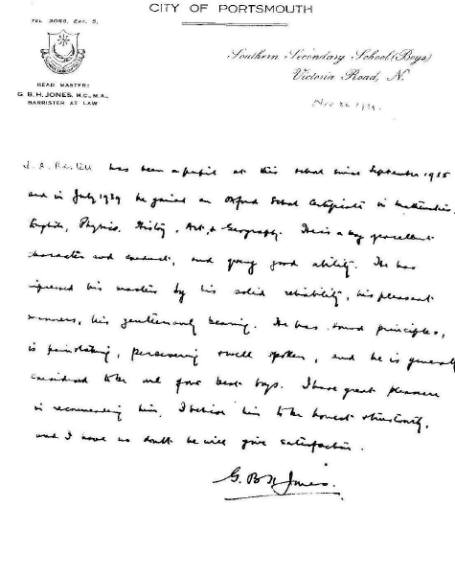 CITY OF PORTSMOUTH
TEL. 3080, EXT. 5.
Southern Secondary School (Boys)
Victoria Road, N.
HEAD MASTER:
G. B. H. JONES, M.C., M.A.,
BARRISTER AT LAW
has been a pupil at this school since September 1935
and in July 1939 he gained an Oxford School Certificate in Mathematics,
English, Physics, History, Art, & Geography. He is a boy of excellent
character and conduct, and very good ability. He has
impressed his masters by his solid reliability, his pleasant
manners, his gentlemanly bearing. He has sound principles,
is painstaking, persevering & well spoken, and he is generally
considered to be one of our best boys. I have great pleasure
in recommending him. I believe him to be honest & trustworthy,
and I have no doubt he will give satisfaction.
G. B. H. Jones.